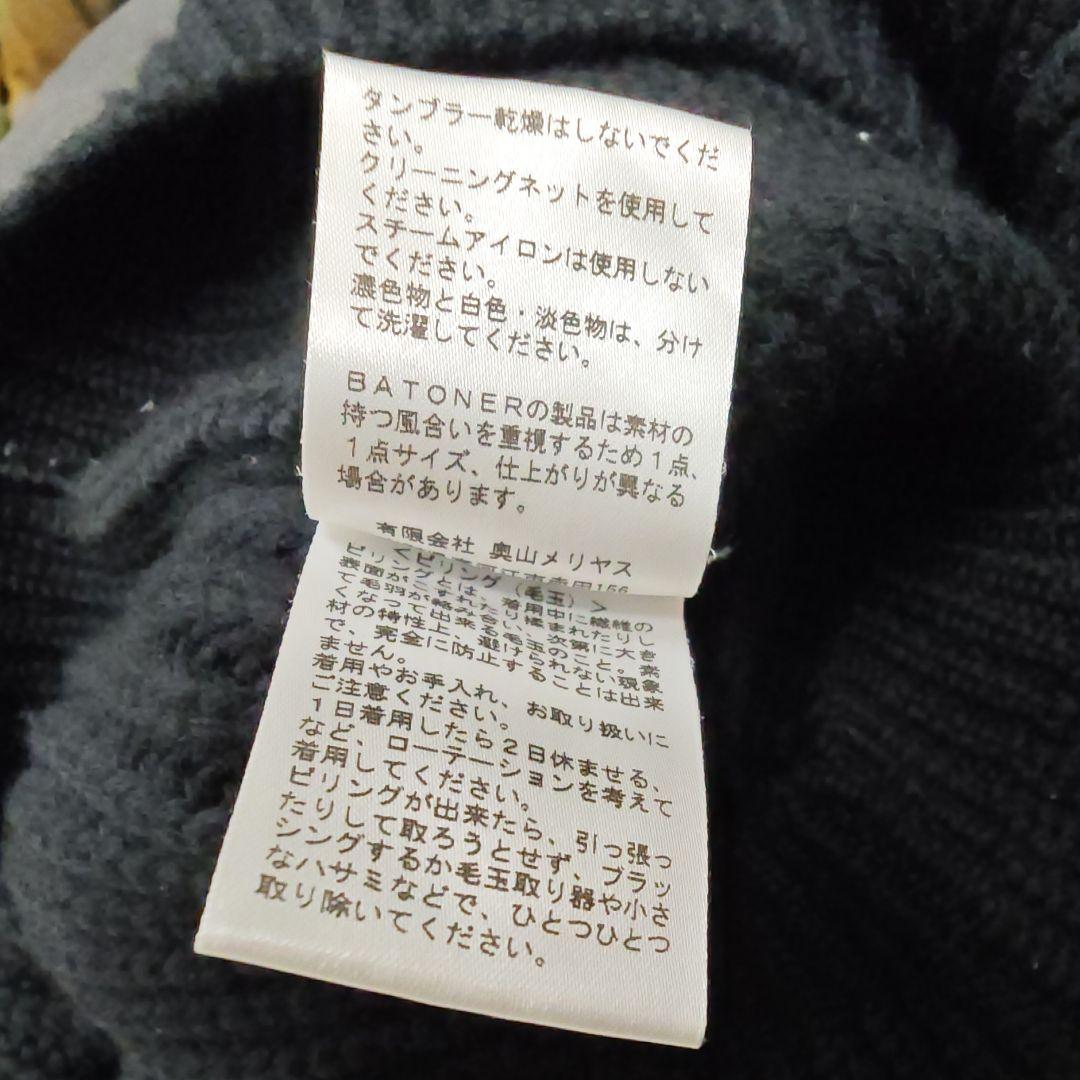 タンブラー乾燥はしないでくだ
さい。
クリーニングネットを使用して
ください。
スチームアイロンは使用しない
でください。
濃色物と白色・淡色物は、分け
て洗濯してください。
BATONERの製品は素材の
持つ風合いを重視するため1点、
1点サイズ、仕上がりが異なる
場合があります。
有限会社 奥山メリヤス
<ピリング（毛玉）>
ピリングとは、着用中に繊維の
表面がこすれたり揉まれたりし
て毛羽が絡み合い、次第に大き
くなって出来る毛玉のこと。素
材の特性上、避けられない現象
で、完全に防止することは出来
ません。
着用やお手入れ、お取り扱いに
ご注意ください。
1日着用したら2日休ませる、
など、ローテーションを考えて
着用してください。
ピリングが出来たら、引っ張っ
たりして取ろうとせず、ブラッ
シングするか毛玉取り器や小さ
なハサミなどで、ひとつひとつ
取り除いてください。